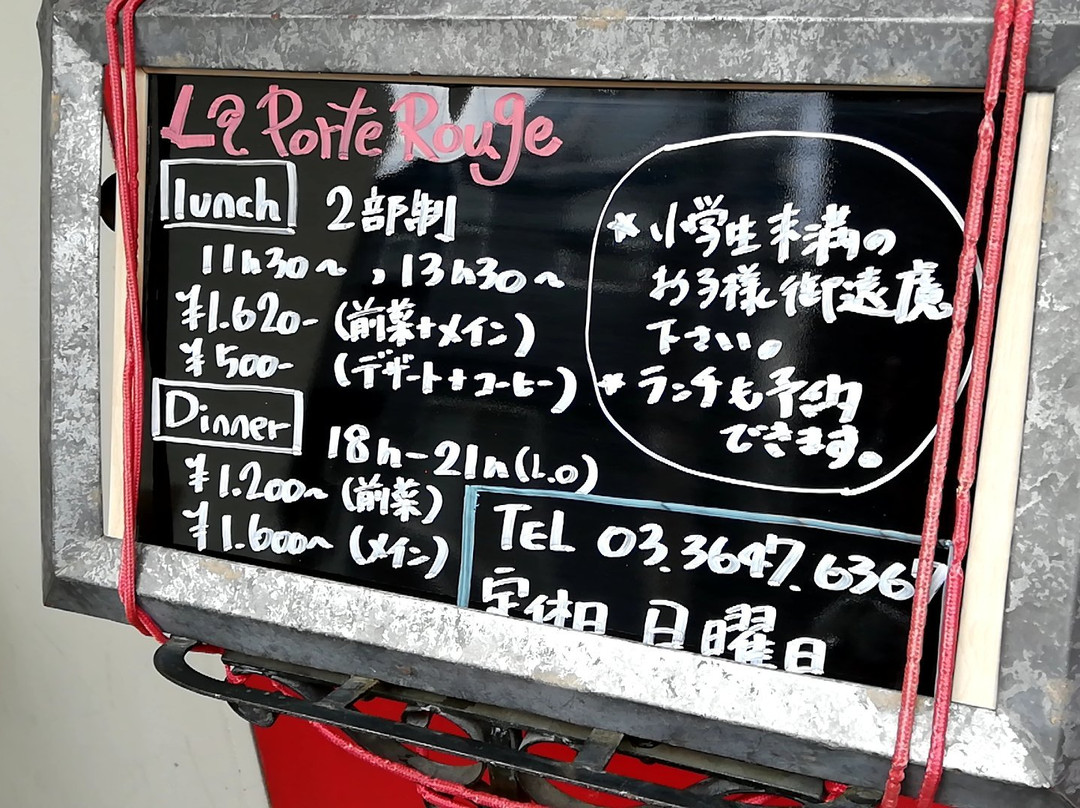 La Porte Rouge
lunch 2部制
11h30〜 , 13h30〜
¥1.620- (前菜+メイン)
¥500- (デザート+コーヒー)
Dinner
18h-21h(L.O)
¥1.200〜 (前菜)
¥1.600〜 (メイン)
* 小学生未満の
お子様御遠慮
下さい。
* ランチも予約
できます。
TEL 03.3647.6367
定休日 日曜日